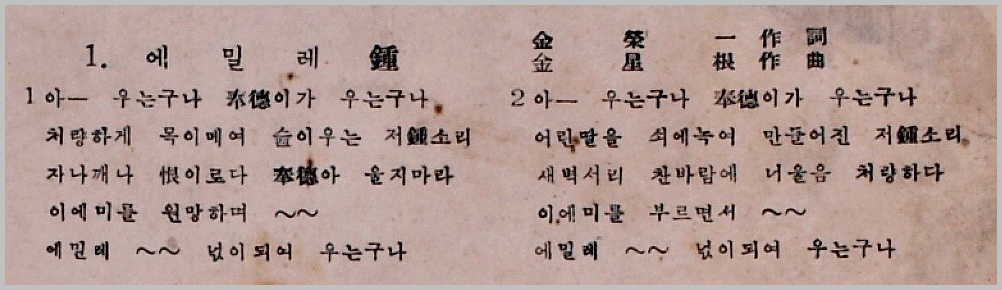 1. 에밀레鍾
金榮一 作詞
金星根 作曲
1 아— 우는구나 奉德이가 우는구나
처량하게 목이메여 슬이우는 저鍾소리
자나깨나 恨이로다 奉德아 울지마라
이에미를 원망하며 ~~
에밀레 ~~ 넋이되여 우는구나
2 아— 우는구나 奉德이가 우는구나
어린딸을 쇠에녹여 만들어진 저鍾소리
새벽서리 찬바람에 너울음 처량하다
이에미를 부르면서 ~~
에밀레 ~~ 넋이되여 우는구나